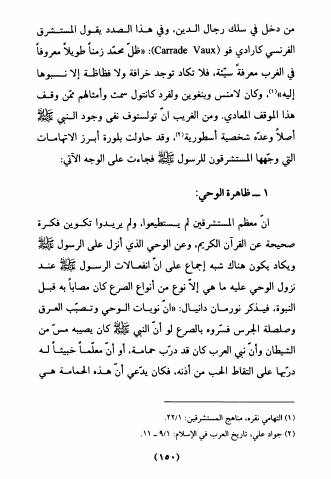 من دخل في سلك رجال الدين، وفي هذا الصدد يقول المستشرق
الفرنسي كارادي فو (Carrade Vaux): «ظلّ محمّد زمناً طويلاً معروفاً
في الغرب معرفةً سيّئة، فلا تكاد توجد خرافة ولا فظاظة إلا نسبوها
إليه»(١)، وكان لامنس وبنغوين ولفرد كانتول سمث وأمثالهم ممّن وقف
هذا الموقف المعادي. ومن الغريب انّ تولستوف نفى وجود النبي ﷺ
أصلاً وعدّه شخصية أسطورية(٢)، وقد حاولت بلورة أبرز الاتهامات
التي وجّهها المستشرقون للرسول ﷺ فجاءت على الوجه الآتي:
١ ــ ظاهرة الوحي:
انّ معظم المستشرقين لم يستطيعوا، ولم يريدوا تكوين فكرة
صحيحة عن القرآن الكريم، وعن الوحي الذي أنزل على الرسول ﷺ
ويكاد يكون هناك شبه إجماع على انّ انفعالات الرسول ﷺ عند
نزول الوحي عليه ما هي إلاّ نوع من أنواع الصرع كان مصاباً به قبل
النبوة، فيذكر نورمان دانيال: «انّ نوبات الوحي وتصبّب العرق
وصلصلة الجرس فسّروه بالصرع لو أنّ النبي ﷺ كان يصيبه مسّ من
الشيطان وأنّ نبي العرب كان قد درّب حمامة، أو أنّ معلّماً خبيثاً له
درّبها على التقاط الحب من أذنه، فكان يدّعي أنّ هذه الحمامة هي
(١) التهامي نقره، مناهج المستشرقين: ٢٢/١.
(٢) جواد علي، تاريخ العرب في الإسلام: ٩/١ ـ ١١.
(١٥٠)